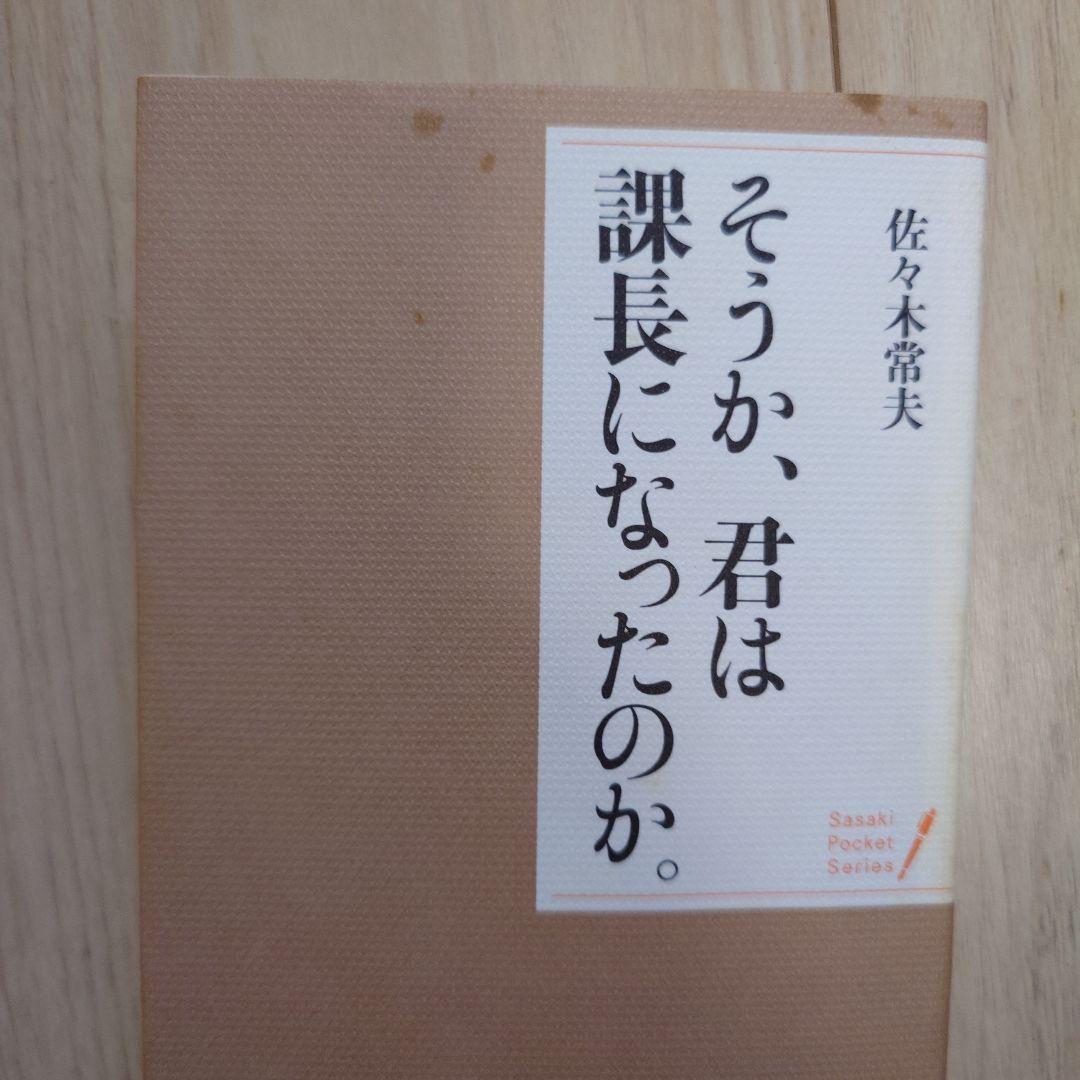 佐々木常夫
そうか、君は
課長になったのか。
Sasaki
Pocket
Series